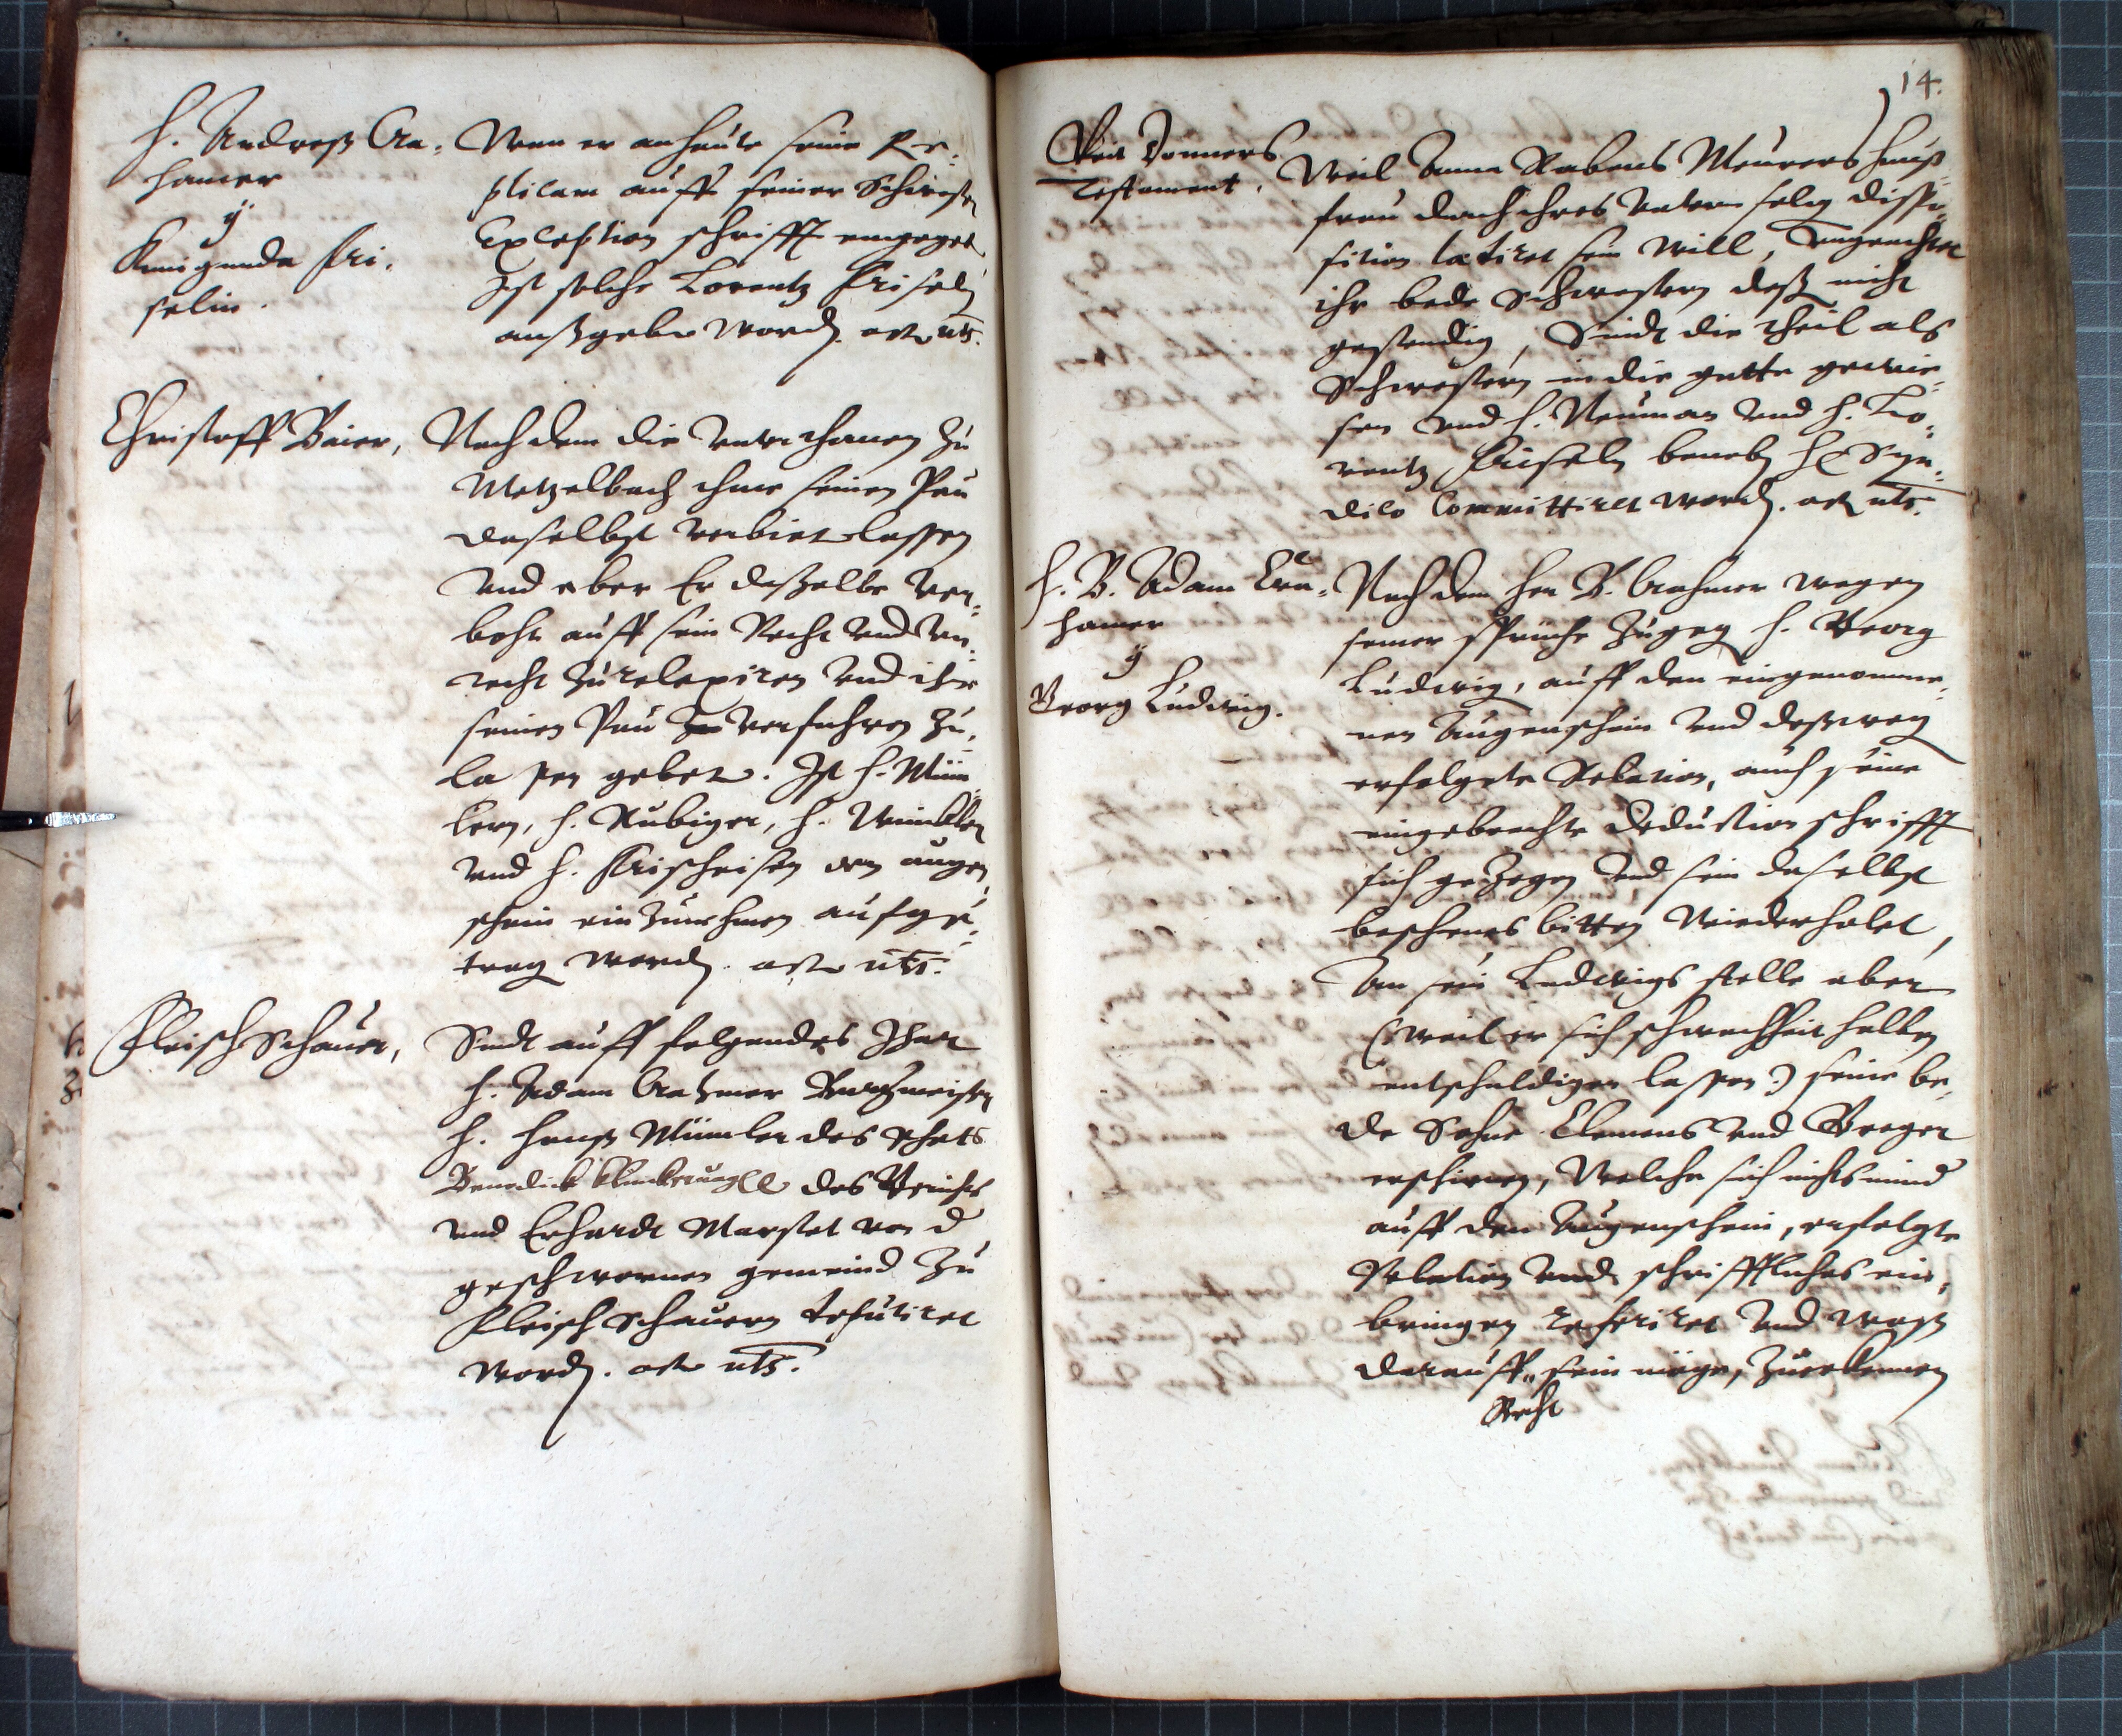 H. Andreß Cra,
hamer
ꝟ
Kunigunda Kri,
selin.
Wan er anheute seine Re,
plicam auff seiner Schwester
Exception schrifft eingegeb,
Ist solche Lorentz Kriseln
außgeben word. act. uts.
Christoff Baier,
Nach dem die Unterthanen zu
Metzelbach ihme seinen Pau
daselbst verbieten lassen
und aber Er daßelbe Ver,
both auff sein Recht und Un,
recht zu relaxiren und ihn
seinen Pau verfuhren zu,
lassen gebeten. Ist H. Müm
lern, H. Rubiger, H. Wincklern
und H. Krischeisen den augen,
schein einzunehmen aufge,
tragen word. act. uts.
Fleisch Schauer,
Sindt auff folgendes Jhar
H. Adam Crahmer Burgmeister
H. Hanß Mümler des Rhats
Benedick des Gerichts
und Erhardt Marstet von d
geschwornen gemeind zu
Fleisch Schauern deputiret
word. act. uts.
14.
Veit Donners
Testament.
Weil Anna Rabens Meurers hauß,
frau durch ihres Vatern selig dispo,
sition latiret sein will, Ungeachtet
ihr bede Schwestern deß nicht
gestendig, Sindt die theil als
Schwestern in die gutte gewie,
sen und H. Neuman und H. Lo,
rentz Kriseln beneben H. Syn,
dico Committiret word. act. uts.
H. B. Adam Cra,
hamer
ꝟ
Georg Ludwig.
Nach dem Her B. Crahmer wegen
seiner sprüche zugegen H. Georg
Ludwig, auff den eingenomme,
nen Augenschein und deßwegen
erfolgete Relation, auch seine
eingebrachte Deduction schrifft
sich gezogen und sein daselbst
beschenes bitten Wiederholet,
An sein Ludwigs stelle aber
(: weil er sich schwachheit halben
entschuldigen lassen :) seine be,
de Sohne Clemens und Gregor
erschienen, Welche sich nichts mind
auff den Augenschein, erfolgte
Relation und schrifftliches ein,
bringen referiret und waß
darauff sein möge, zuerkennen
Recht